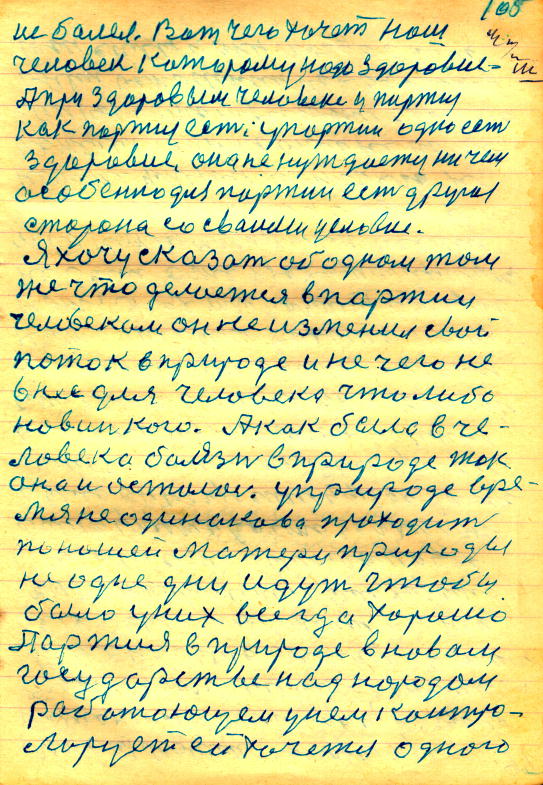 108
не болел. Вот чего хочет наш
человек которому надо здоровие-
А при здоровым человеке и партия
как партия есть; у партии одно ест
здоровие, она не нуждаету ни чем
особенно для партии ест другая
сторона со сваими условие.
Я хочу сказат об одном том
же что делоется в партии
человеком он не изменил свой
поток в природе и не чего не
внес для человека что либо
новинкого. А как была в че-
ловека болязн в природе так
она и осталос. у природе вре-
мя не одинакова проходит
по нашей Матери природы
не одне дни идут чтобы
было у них всегда хорошо
Партия в природе в новам
государстве над народом
работающем у нем контро-
лирует ей хочется одного